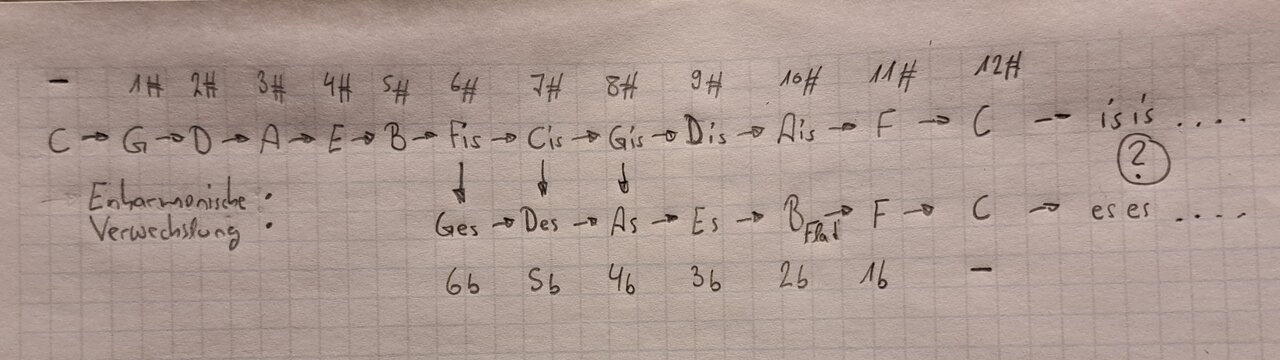 - 1# 2# 3# 4# 5# 6# 7# 8# 9# 10# 11# 12#
C → G → D → A → E → B → Fis → Cis → Gis → Dis → Ais → F → C -- isis ....
↓ ↓ ↓ ?
Enharmonische :
Ges → Des → As → Es → B Flat → F → C → eses ....
Verwechslung :
6b 5b 4b 3b 2b 1b -